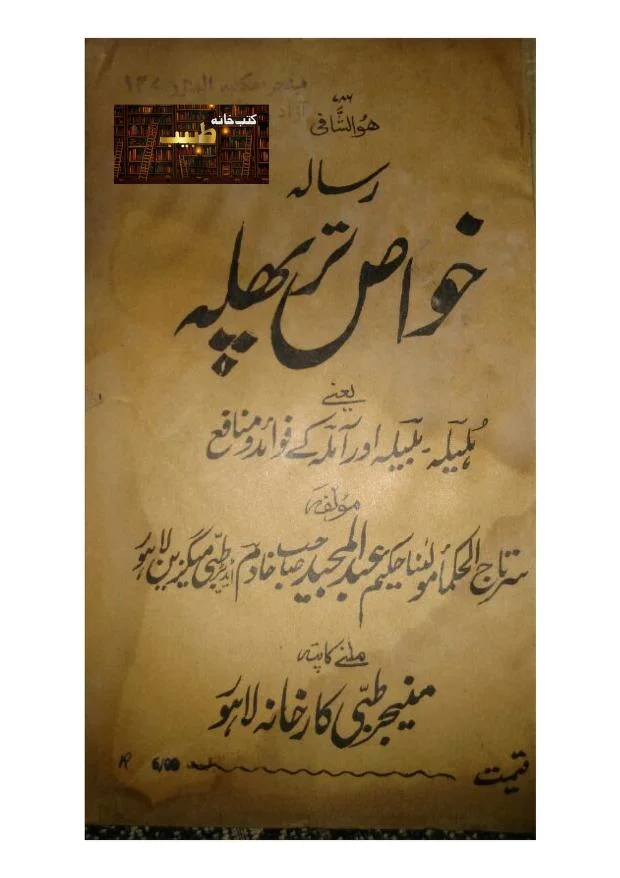 کتب خانہ
طبیب
۷۸۶
ھوالشافی
رسالہ
خواص تر پھلہ
یعنے
ہلیلہ۔ بلیلہ اور آملہ کے فوائد و منافع
مؤلفہ
سرتاج الحکما مولینا حکیم عبدالمجید صاحب خادم ایڈیٹر طبّی میگزین لاہور
ملنے کا پتہ
منیجر طبّی کارخانہ لاہور
قیمت R 6/00